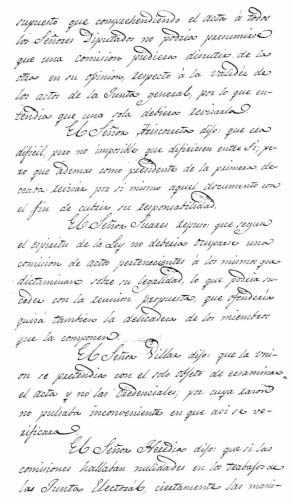 supuesto que comprehendiendo el acta á todos
los Señores Diputados no podria presumirse
que una comision pudiera discutir de la
otra en su opinion, respecto á la validéz de
los actos de la Junta general, por lo que en-
tendia que una sola debiera revisarla
El Señor dijo: que era
dificil, pero no imposible que difiriesen entre sí; pe-
ro que ademas como presidente de la primera de-
seaba revisar por si mismo aquel documento con
el fin de cubrir su responsabilidad.
El Señor Suares repuso: que segun
el espiritu de la Ley no deberia ocuparse una
comision de actos pertenecientes á los mismos que
dictaminan sobre su legalidad, lo que podria su-
ceder con la reunion propuesta, que ofenderia
quizá tambien la delicadeza de los miembros
que la componen.
El Señor Villar dijo: que la uni-
on se pretendia con el solo objeto de ecsaminar
el acta y no las credenciales, por cuya razon
no pulsaba inconveniente en que asi se ve-
rificara.
El Señor Heredia dijo: que si las
comisiones hallaban nulidades en los trabajos de
las Junta Electoral, ciertamente las mani-